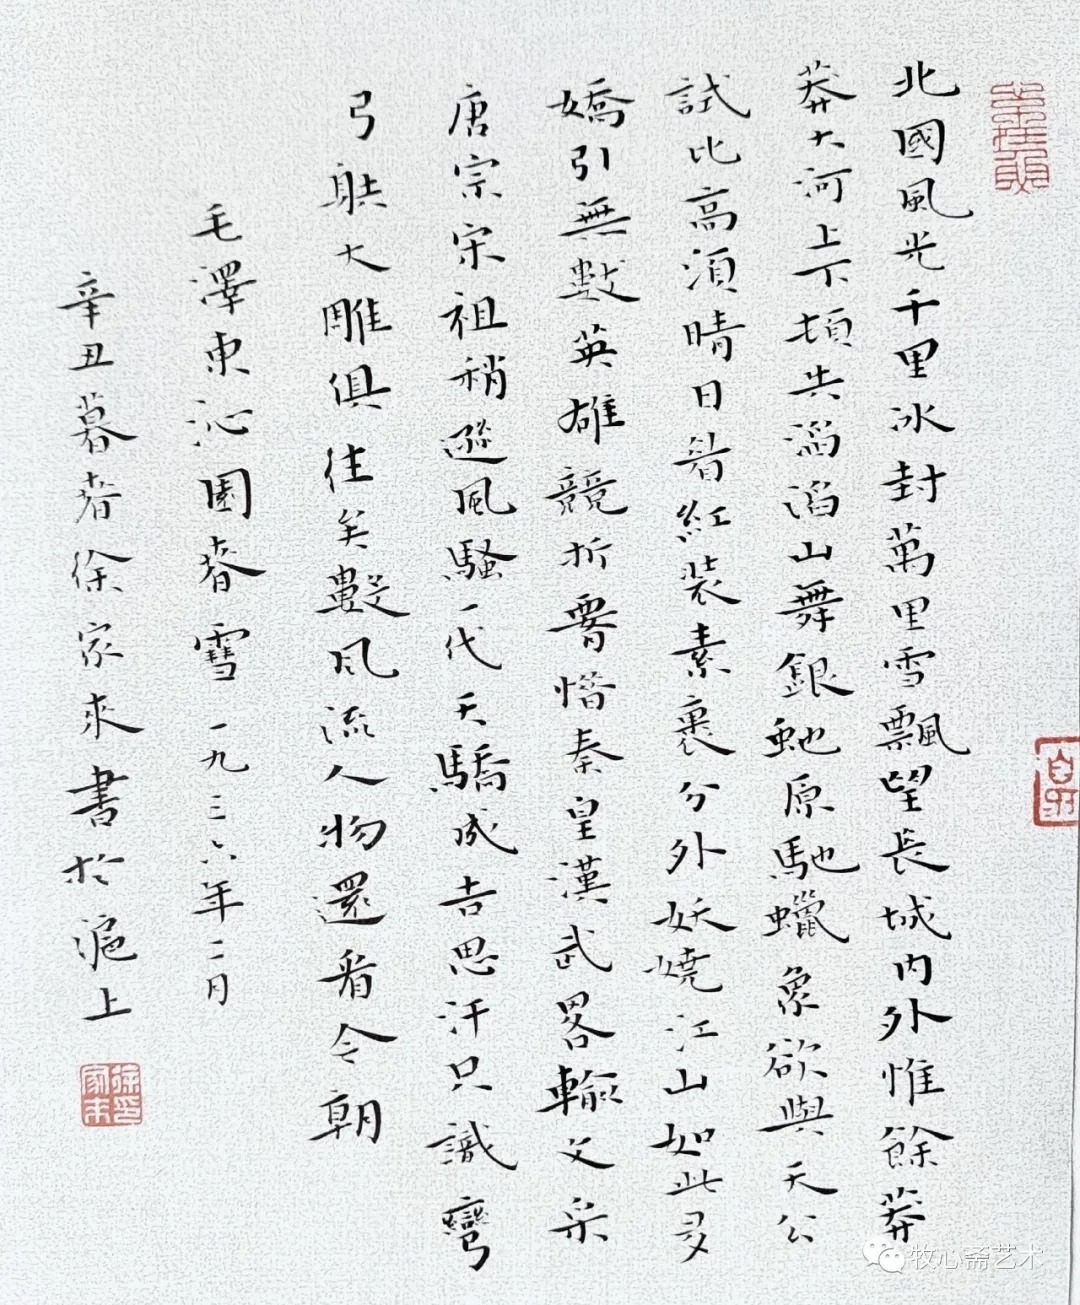 北國風光千里冰封萬里雪飄望長城内外惟餘莽
莽大河上下頓失滔滔山舞銀虵原馳蠟象欲與天公
試比高須晴日看紅裝素裹分外妖嬈江山如此多
嬌引無數英雄競折腰惜秦皇漢武畧輸文采
唐宗宋祖稍遜風騷一代天驕成吉思汗只識彎
弓躲大雕俱往矣數風流人物還看今朝
毛澤東沁園春雪一九三六年二月
辛丑暮春徐家來書於滬上
牧心斋艺术